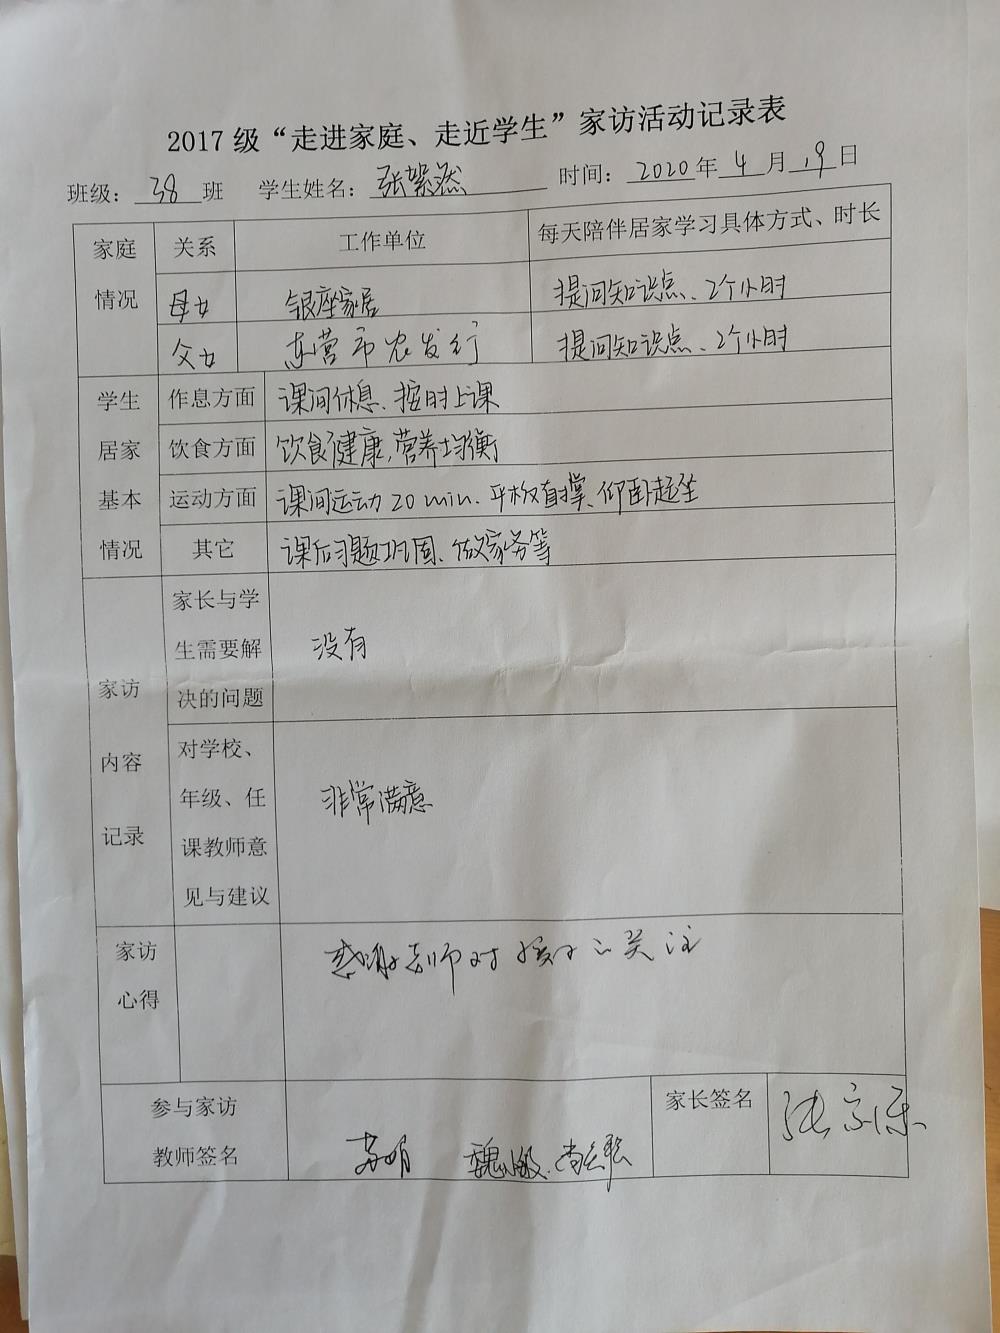 2017级“走进家庭、走近学生”家访活动记录表
班级：38班 学生姓名：张紫然 时间：2020年4月19日
家庭情况 关系 工作单位 每天陪伴居家学习具体方式、时长
母女 银座家居 提问知识点、2个小时
父女 东营市农发行 提问知识点、2个小时
学生居家基本情况
作息方面 课间休息、按时上课
饮食方面 饮食健康,营养均衡
运动方面 课间运动20min.平板支撑、仰卧起坐
其它 课后习题巩固、做家务等
家访内容记录
家长与学
生需要解
决的问题
没有
对学校、
年级、任
课教师意
见与建议
非常满意
家访
心得
感谢老师对孩子的关注
参与家访
教师签名
苏明 魏
家长签名
张